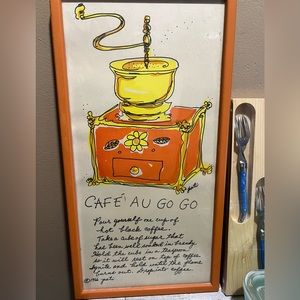 CAFÉ AU GO GO
Pour yourself one cup of
hot black coffee.
Take a cube of sugar that
has been well soaked in brandy
Hold the cube in a teaspoon
so it will rest on top of coffee.
Ignite and hold until the flame
burns out. Drop into coffee.